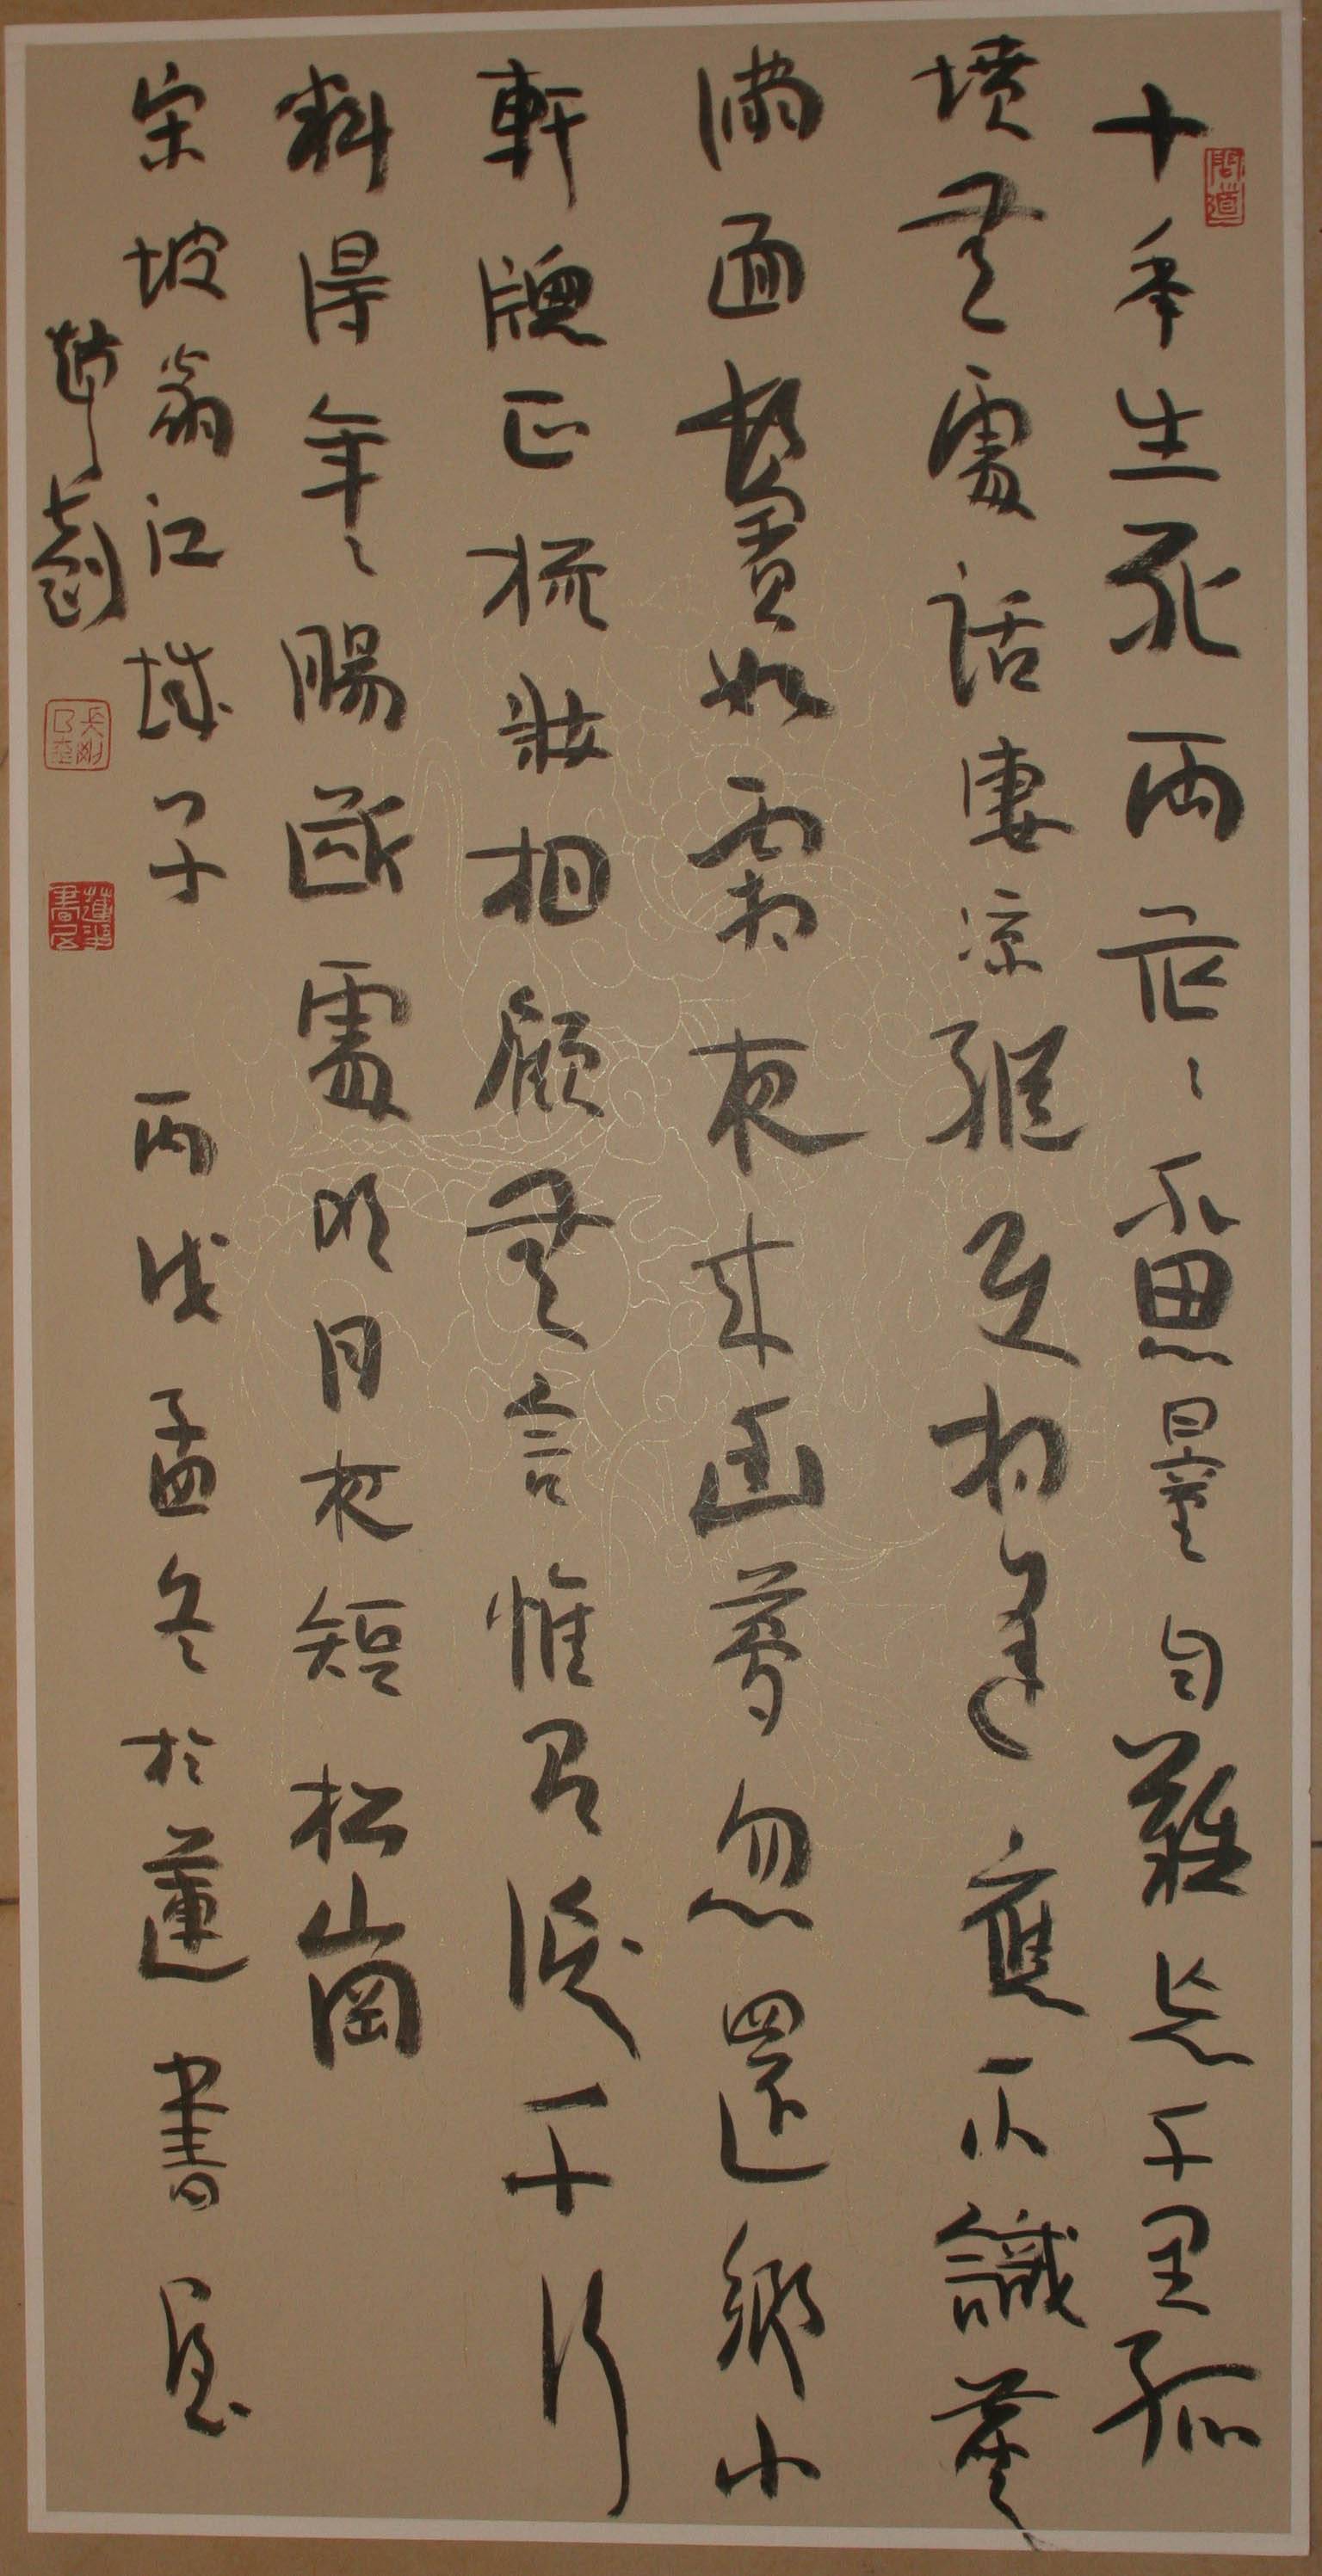 十年生死兩茫〻不思量自難忘千里孤
墳無處話淒涼縱使相逢應不識塵
滿面鬢如霜夜來幽夢忽還鄉小
軒牕正梳妝相顧無言惟有淚千行
料得年〻腸斷處明月夜短松崗
宋坡翁江城子 丙戌孟冬於蓮 書屋
問道